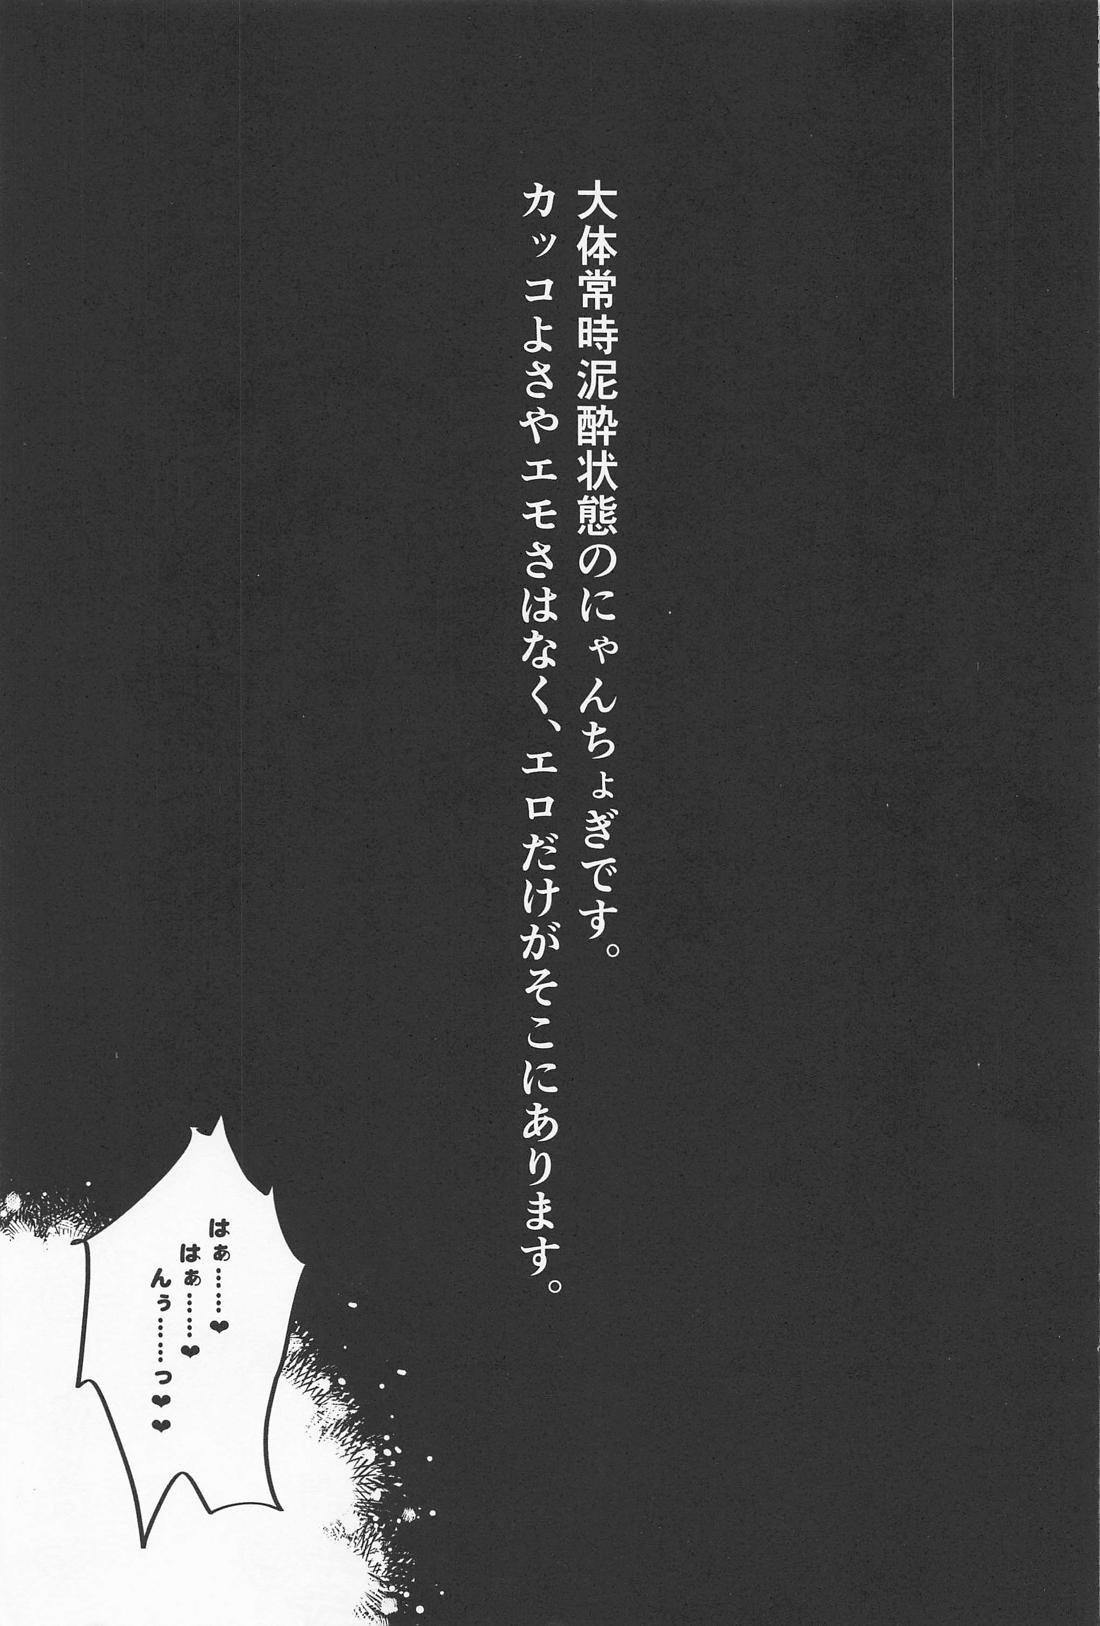 大体常時泥酔状態のにゃんちょぎです。
カッコよさやエモさはなく、エロだけがそこにあります。
はぁ……❤
はぁ……❤
んぅ……っ❤❤